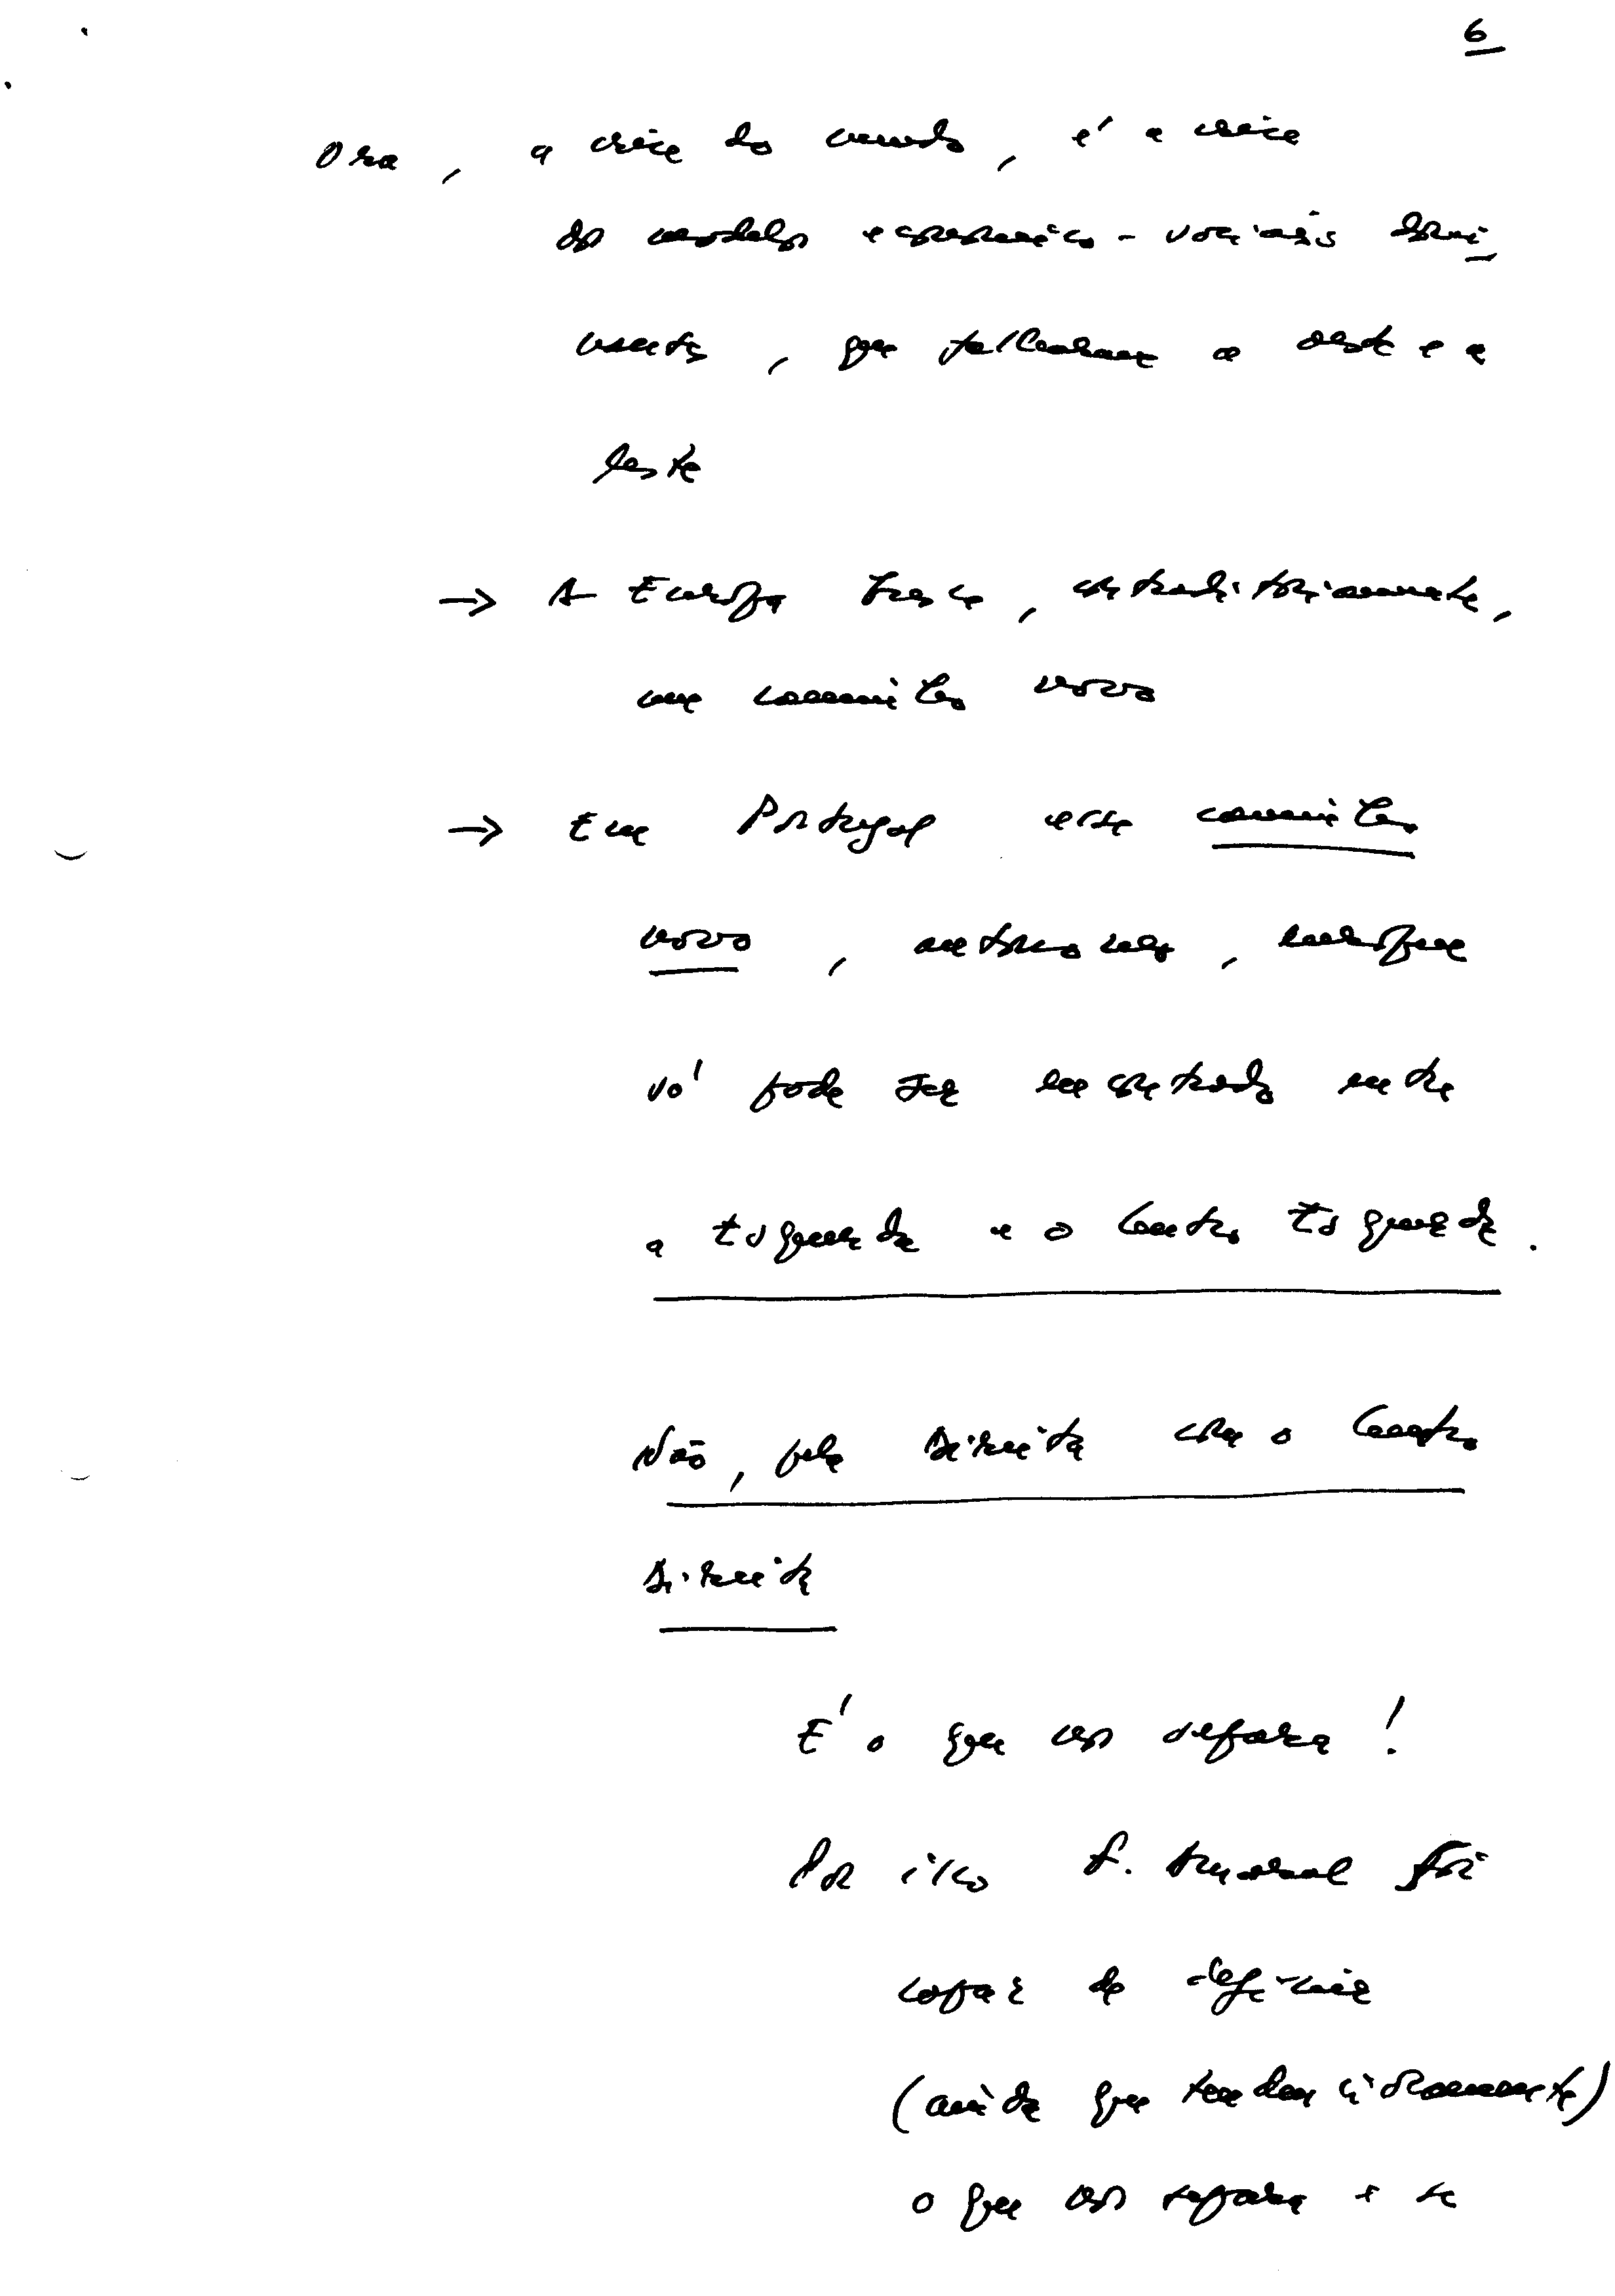 6
Ora, a crise do mundo, é a crise
dos modelos económico-sociais domi
nantes, que falharam a oeste e a
leste
→ A Europa busca, contraditoriamente,
um caminho novo
→ Em Portugal esse caminho
novo, autónomo, europeu
só pode ser encontrado entre
a Esquerda e o Centro Esquerda.
Não, pela Direita com o Centro
Direita
É o que nos separa!
Por isso F. Amaral foi
capaz de definir
(ainda que tendenciosamente)
o que nos separa e se